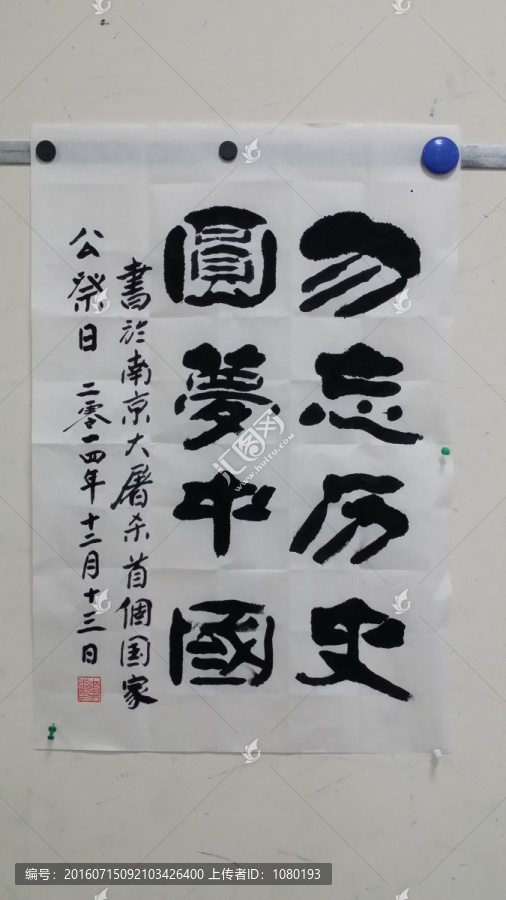 勿忘历史
圓夢中國
書於南京大屠杀首個国家
公祭日 二零一四年十二月十三日
汇图网
www.huitu.com
编号：20160715092103426400 上传者ID：1080193